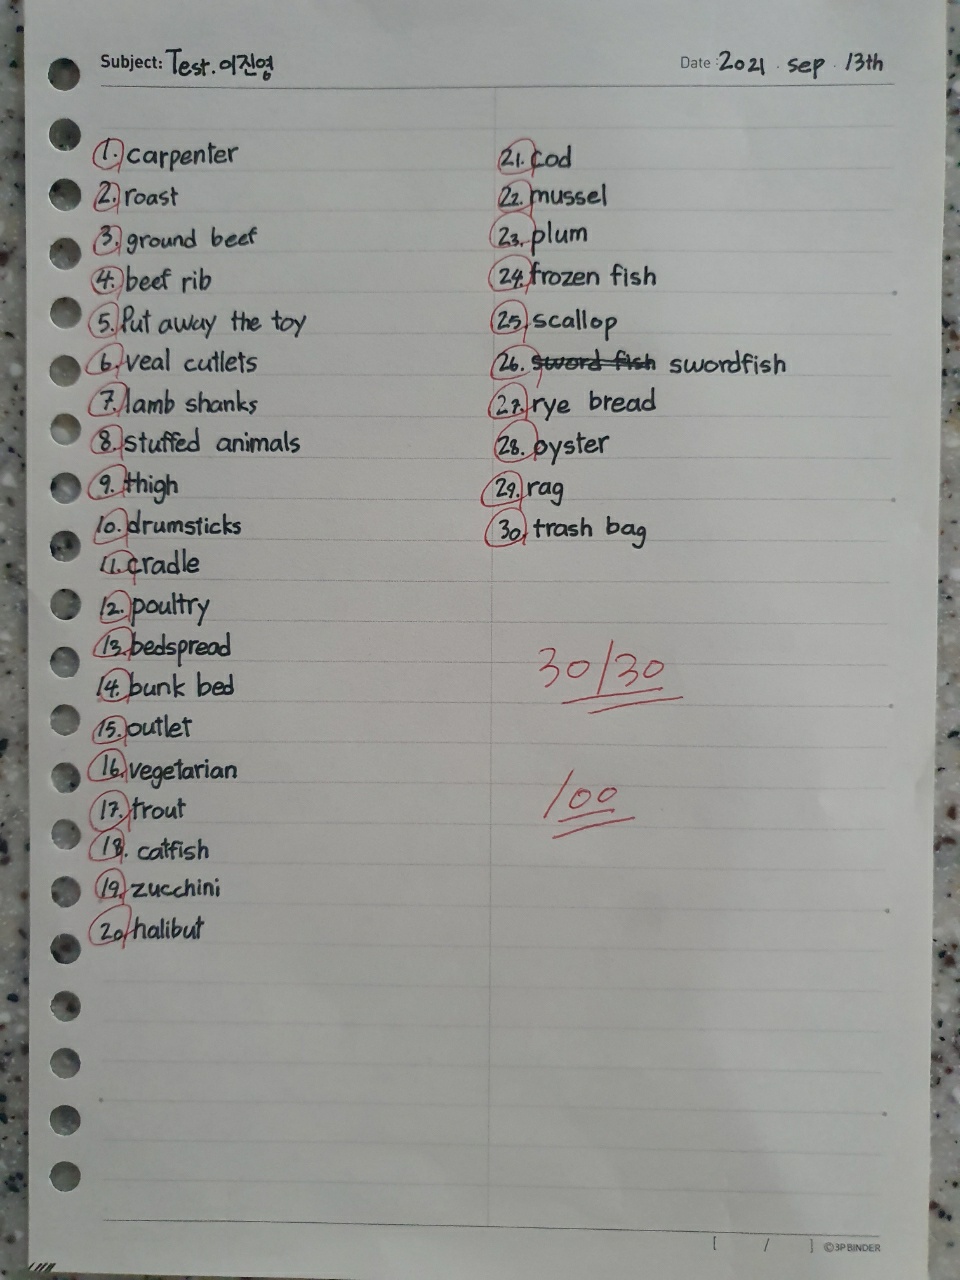 Subject: Test. 이진영
Date : 2021 . sep . 13th
1. carpenter
2. roast
3. ground beef
4. beef rib
5. Put away the toy
6. veal cutlets
7. lamb shanks
8. stuffed animals
9. thigh
10. drumsticks
11. cradle
12. poultry
13. bedspread
14. bunk bed
15. outlet
16. vegetarian
17. trout
18. catfish
19. zucchini
20. halibut
21. cod
22. mussel
23. plum
24. frozen fish
25. scallop
26. sword fish swordfish
27. rye bread
28. oyster
29. rag
30. trash bag
30/30
100
[ / ] ©3P BINDER